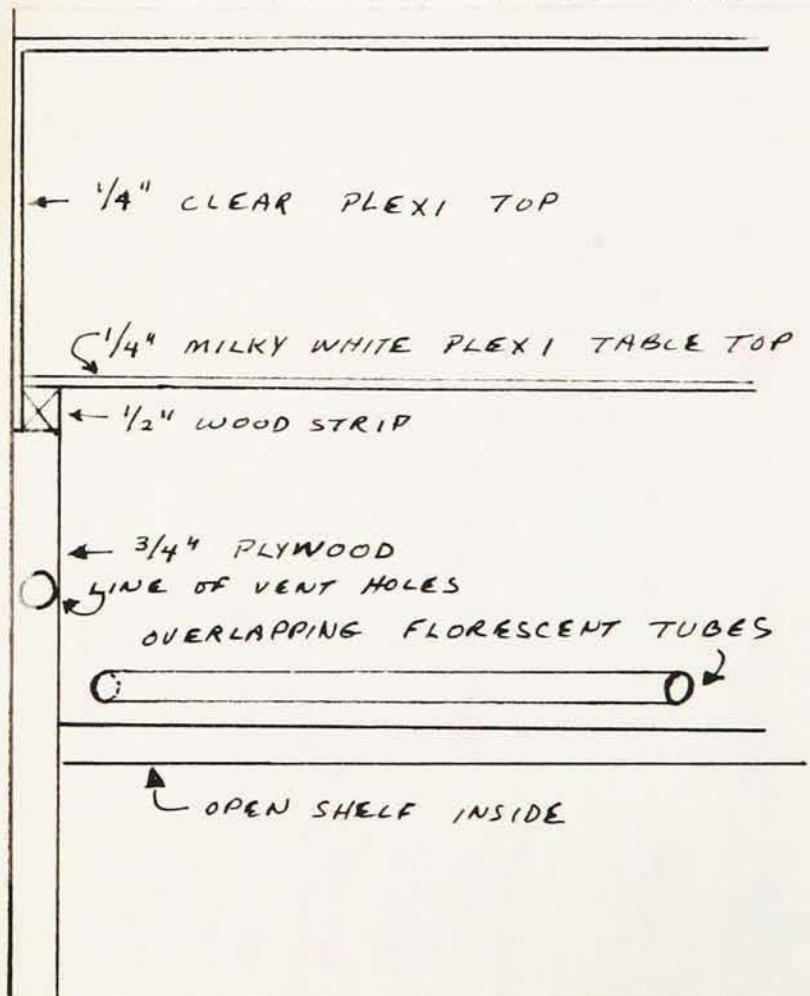 1/4" CLEAR PLEXI TOP
1/4" MILKY WHITE PLEXI TABLE TOP
1/2" WOOD STRIP
3/4" PLYWOOD
LINE OF VENT HOLES
OVERLAPPING FLORESCENT TUBES
OPEN SHELF INSIDE